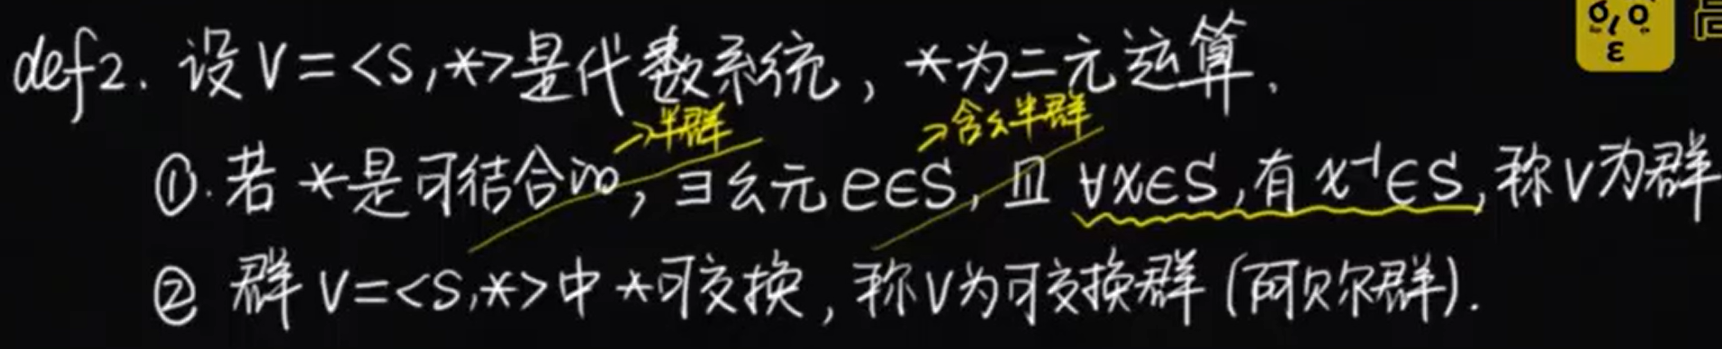 def2. 设 V=<S,*>是代数系统, *为二元运算.
→半群 →含幺半群
①. 若 *是可结合的, ∃幺元 e∈S, 且 ∀x∈S, 有 x⁻¹∈S, 称 V 为群
② 群 V=<S,*>中 *可交换, 称 V 为可交换群 (阿贝尔群).